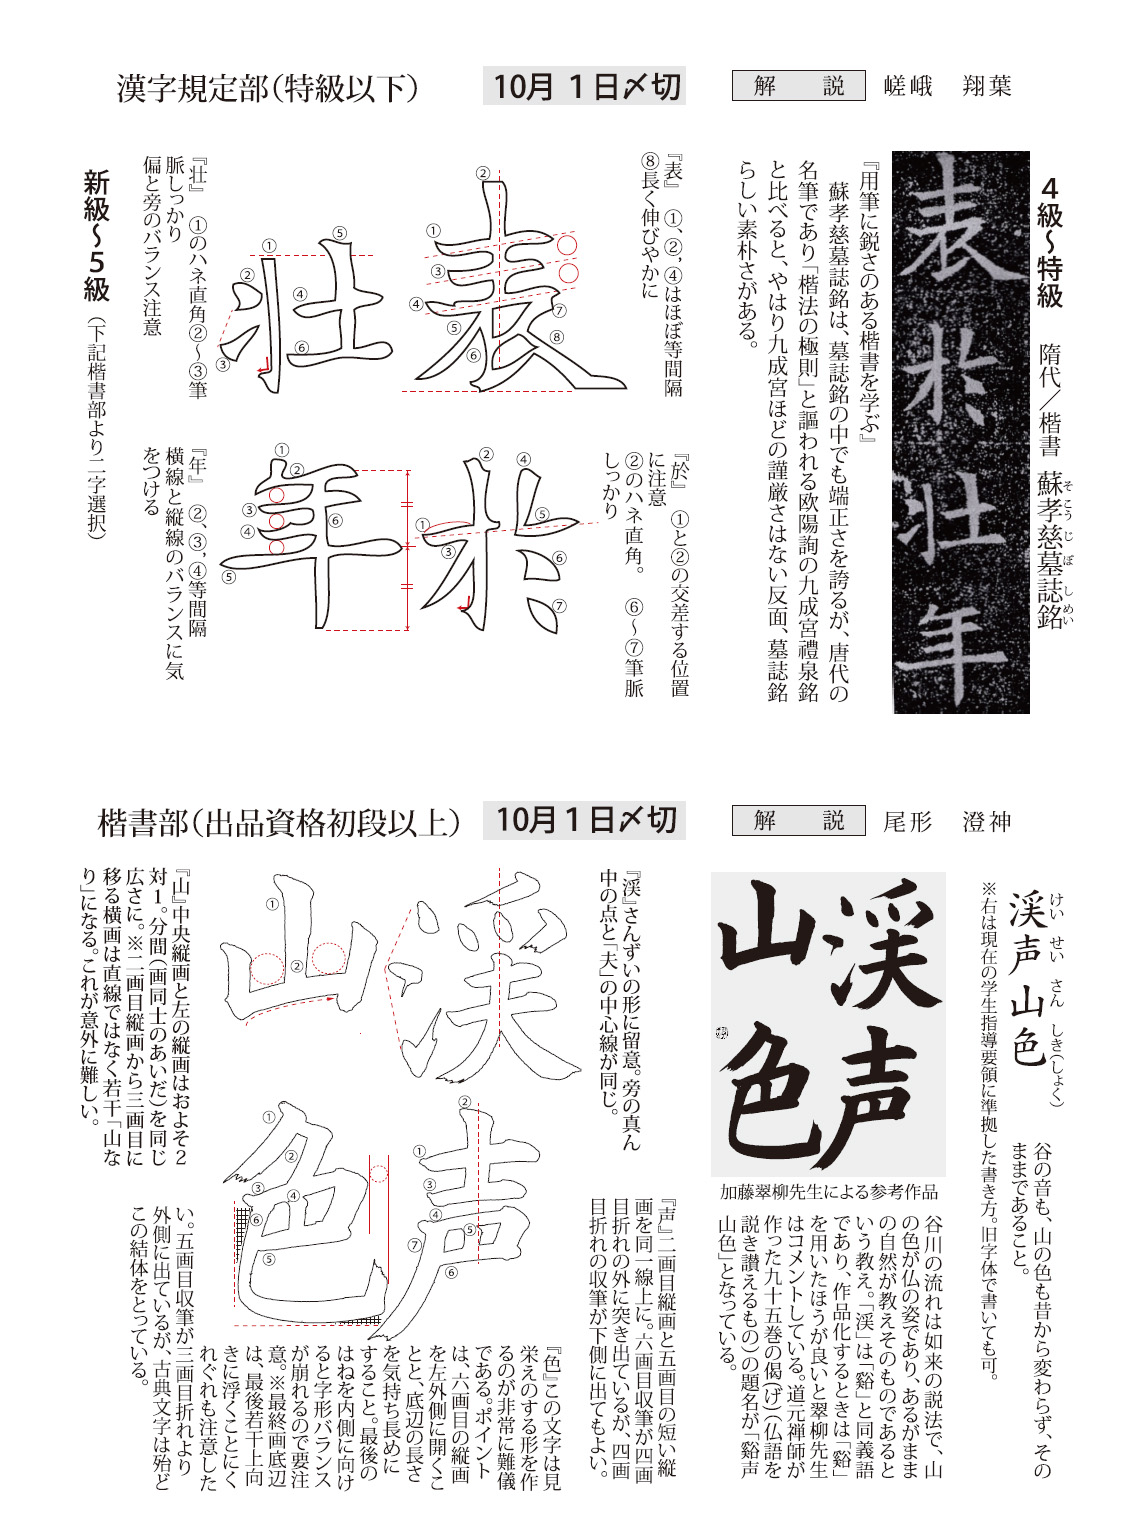 漢字規定部（特級以下）
10月１日〆切
解　説
嵯峨　翔葉
４級〜特級　隋代／楷書　蘇孝慈墓誌銘
そ こう じ ぼ し めい
表於壮年
『用筆に鋭さのある楷書を学ぶ』
蘇孝慈墓誌銘は、墓誌銘の中でも端正さを誇るが、唐代の
名筆であり「楷法の極則」と謳われる欧陽詢の九成宮禮泉銘
と比べると、やはり九成宮ほどの謹厳さはない反面、墓誌銘
らしい素朴さがある。
『表』　①、②，④はほぼ等間隔
⑧長く伸びやかに
② ① ③ ④ ⑤ ⑥ ⑦ ⑧
表
『於』　①と②の交差する位置
に注意
②のハネ直角。　⑥〜⑦筆脈
しっかり
② ④ ① ③ ⑤ ⑥ ⑦
於
『壮』　①のハネ直角②〜③筆
脈しっかり
偏と旁のバランス注意
① ② ③ ④ ⑤ ⑥
壮
『年』　②、③，④等間隔
横線と縦線のバランスに気
をつける
① ② ③ ④ ⑤ ⑥
年
新級〜５級（下記楷書部より二字選択）
楷書部（出品資格初段以上）
10月１日〆切
解　説
尾形　澄神
渓声山色
けい せい さん しき（しょく）
※右は現在の学生指導要領に準拠した書き方。旧字体で書いても可。
谷の音も、山の色も昔から変わらず、その
ままであること。
渓声
山色
加藤翠柳先生による参考作品
谷川の流れは如来の説法で、山
の色が仏の姿であり、あるがまま
の自然が教えそのものであると
いう教え。「渓」は「谿」と同義語
であり、作品化するときは「谿」
を用いたほうが良いと翠柳先生
はコメントしている。道元禅師が
作った九十五巻の偈（げ）（仏語を
説き讃えるもの）の題名が「谿声
山色」となっている。
『渓』さんずいの形に留意。旁の真ん
中の点と「夫」の中心線が同じ。
渓
『声』二画目縦画と五画目の短い縦
画を同一線上に。六画目収筆が四画
目折れの外に突き出ているが、四画
目折れの収筆が下側に出てもよい。
② ① ③ ④ ⑤ ⑥ ⑦
声
『山』中央縦画と左の縦画はおよそ２
対１。分間（画同士のあいだ）を同じ
広さに。※二画目縦画から三画目に
移る横画は直線ではなく若干「山な
り」になる。これが意外に難しい。
① ②
山
① ② ③ ④ ⑤ ⑥
色
『色』この文字は見
栄えのする形を作
るのが非常に難儀
である。ポイント
は、六画目の縦画
を左外側に開くこ
とと、底辺の長さ
を気持ち長めに
すること。最後の
はねを内側に向け
ると字形バランス
が崩れるので要注
意。※最終画底辺
は、最後若干上向
きに浮くことにく
れぐれも注意した
い。五画目収筆が三画目折れより
外側に出ているが、古典文字は殆ど
この結体をとっている。